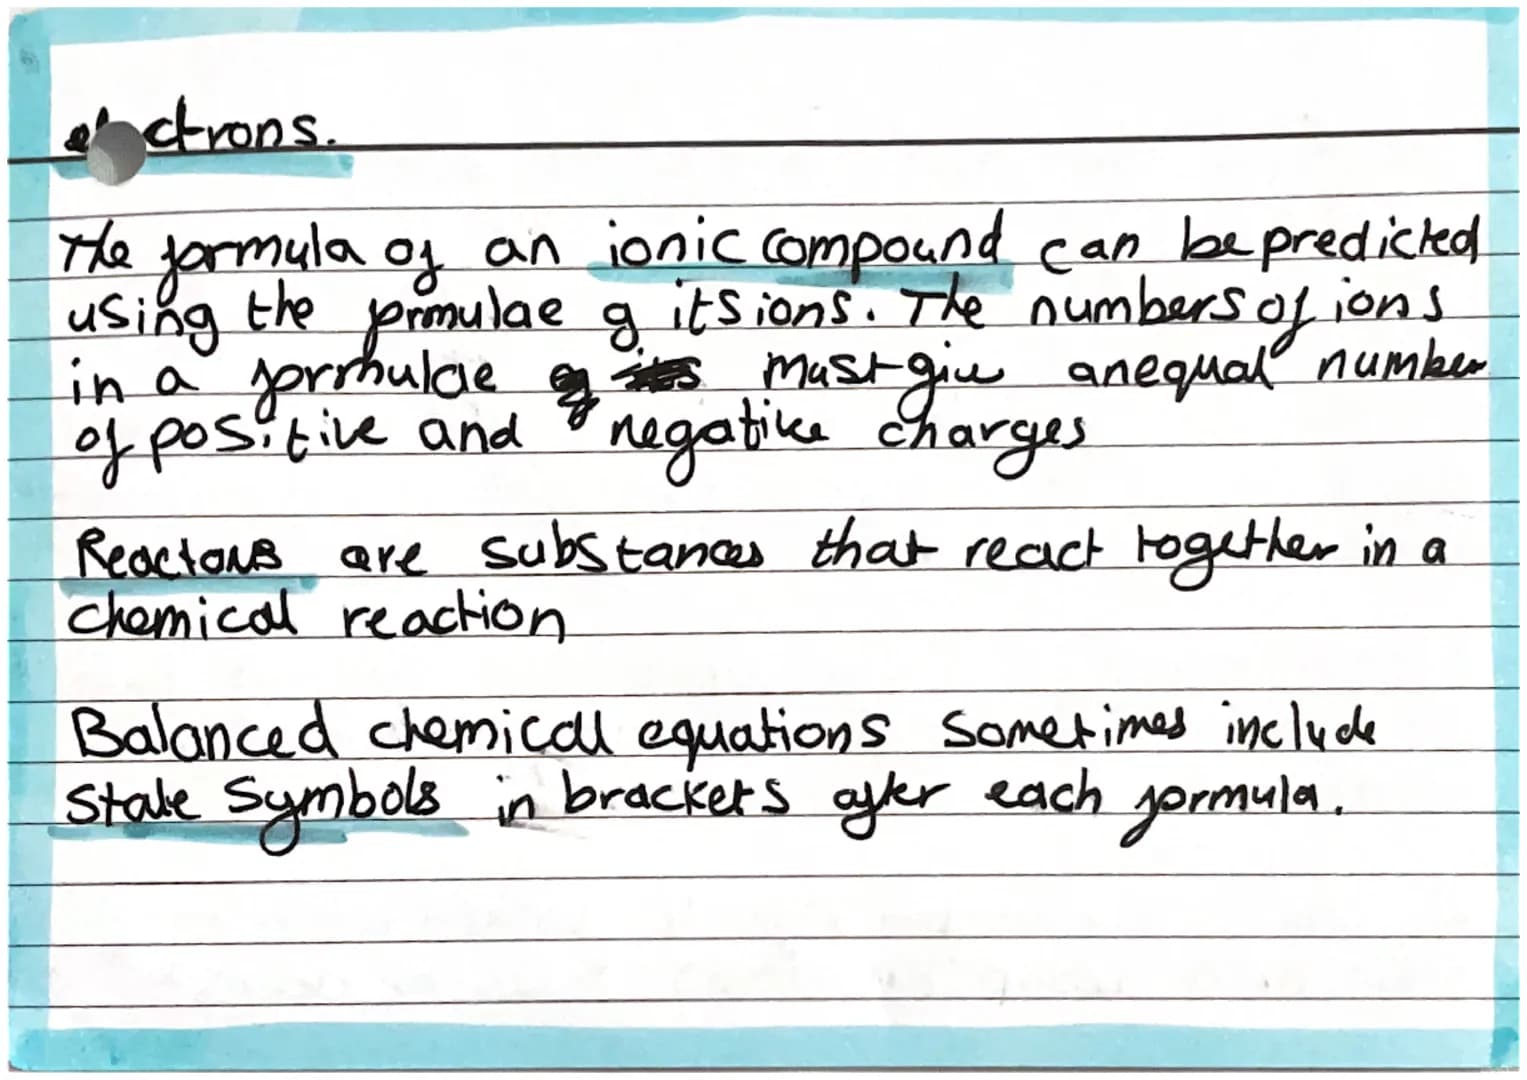 electrons.
The formula of an ionic compound can be predicted
using the formulae of its ions. The numbers of ions
in a formulae must give an equal number
of positive and negative charges
Reactans are substances that react together in a
chemical reaction
Balanced chemical equations sometimes include
state symbols in brackets after each formula.